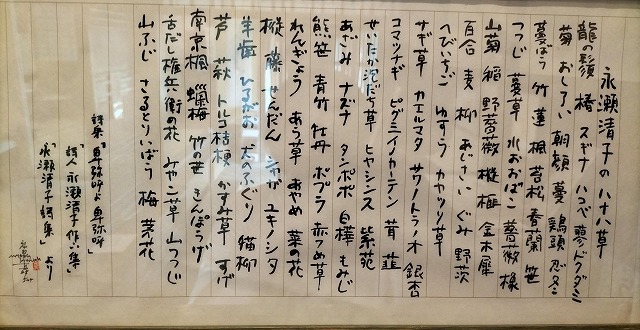 永瀬清子の八十八草
龍の鬚 椿 スギナ ハコベ 蓼 ドクダミ
菊 おしろい 朝顔 蔓 鶏頭 忍冬
蔓ばら 竹 蓮 楓 若松 春蘭 笹
つつじ 蔓草 水おおばこ 薔薇 橡
山菊 稲 野薔薇 樅 極 金木犀
百合 麦 柳 あじさい ぐみ 野茨
へびいちご ゆすら カヤツリ草
サギ草 カエルマタ サワノトラノオ 銀杏
コマツナギ ピグミイカーテン 茸 韮
せいたか泡だち草 ヒヤシンス 紫苑
あざみ ナズナ タンポポ 白樺 もみじ
熊笹 青竹 牡丹 ポプラ 赤つめ草
れんぎょう あら草 あやめ 菜の花
樅 藤 せんだん シャガ ユキノシタ
羊歯 ひるがお 犬のふぐり 猫柳
芦 萩 トルコ桔梗 かすみ草 すげ
南京楓 蝋梅 竹の世 きんぽうげ
舌だし権兵衛の花 みやこ草 山つつじ
山ふじ さるとりいばら 梅 葵花
詩集「卑弥呼よ卑弥呼」
「詩人 永瀬清子作品集」
「永瀬清子詩集」より